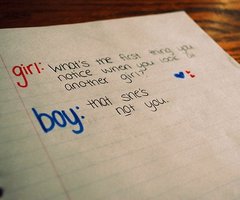 girl: What's the first thing you
notice when you look at
another girl?
boy: that she's
not you.